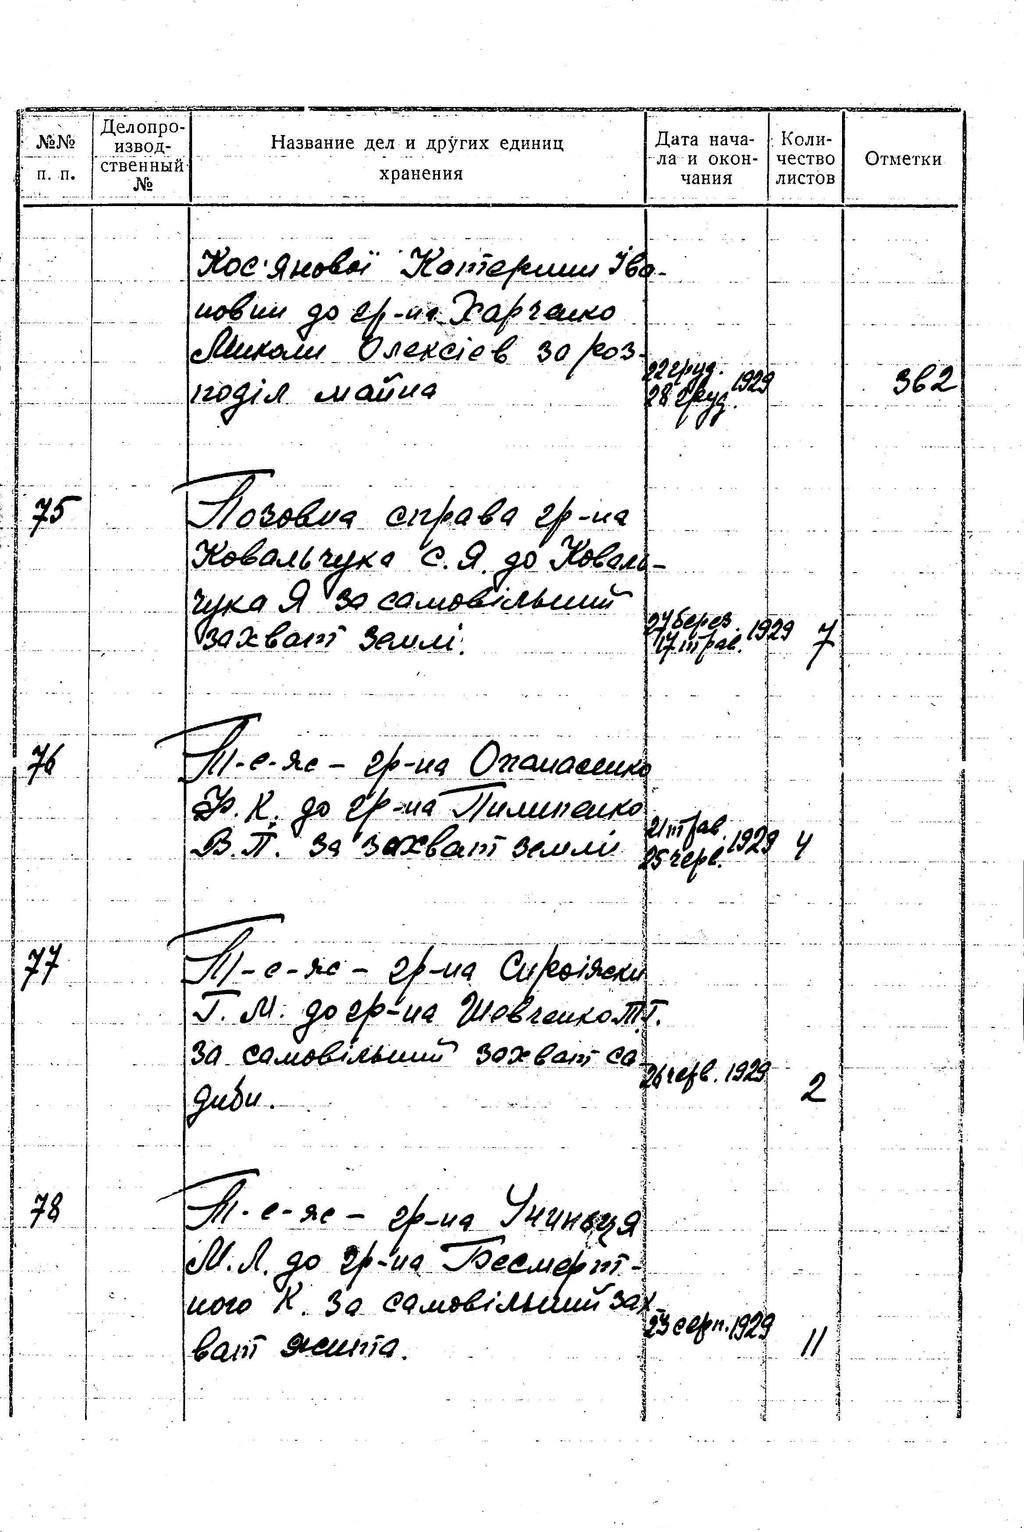 №№ п. п.
Делопро-
извод-
ственный
№
Название дел и других единиц
хранения
Дата нача-
ла и окон-
чания
Коли-
чество
листов
Отметки
Кос'янової Катерини Іва-
новни до гр-на Харченко
Миколи Олексієв за роз-
поділ майна
22 груд.
28 груд. 1929
362
75
Позовна справа гр-на
Ковальчука С. Я. до Коваль-
чука Я за самовільний
захват землі.
27 берез.
17 трав. 1929
7
76
Т-с-яс - гр-на Опанасенко
Ф. К. до гр-на Пилипенко
В. П. за захват землі
21 трав.
25 черв. 1929
4
77
Т-с-яс - гр-на
Г. М. до гр-на Шевченко Т. Г.
за самовільний захват са-
диби.
26 черв. 1929
2
78
Т-с-яс - гр-на
М. Л. до гр-на Бесмерт-
ного К. за самовільний зах-
ват жита.
23 серп. 1929
11